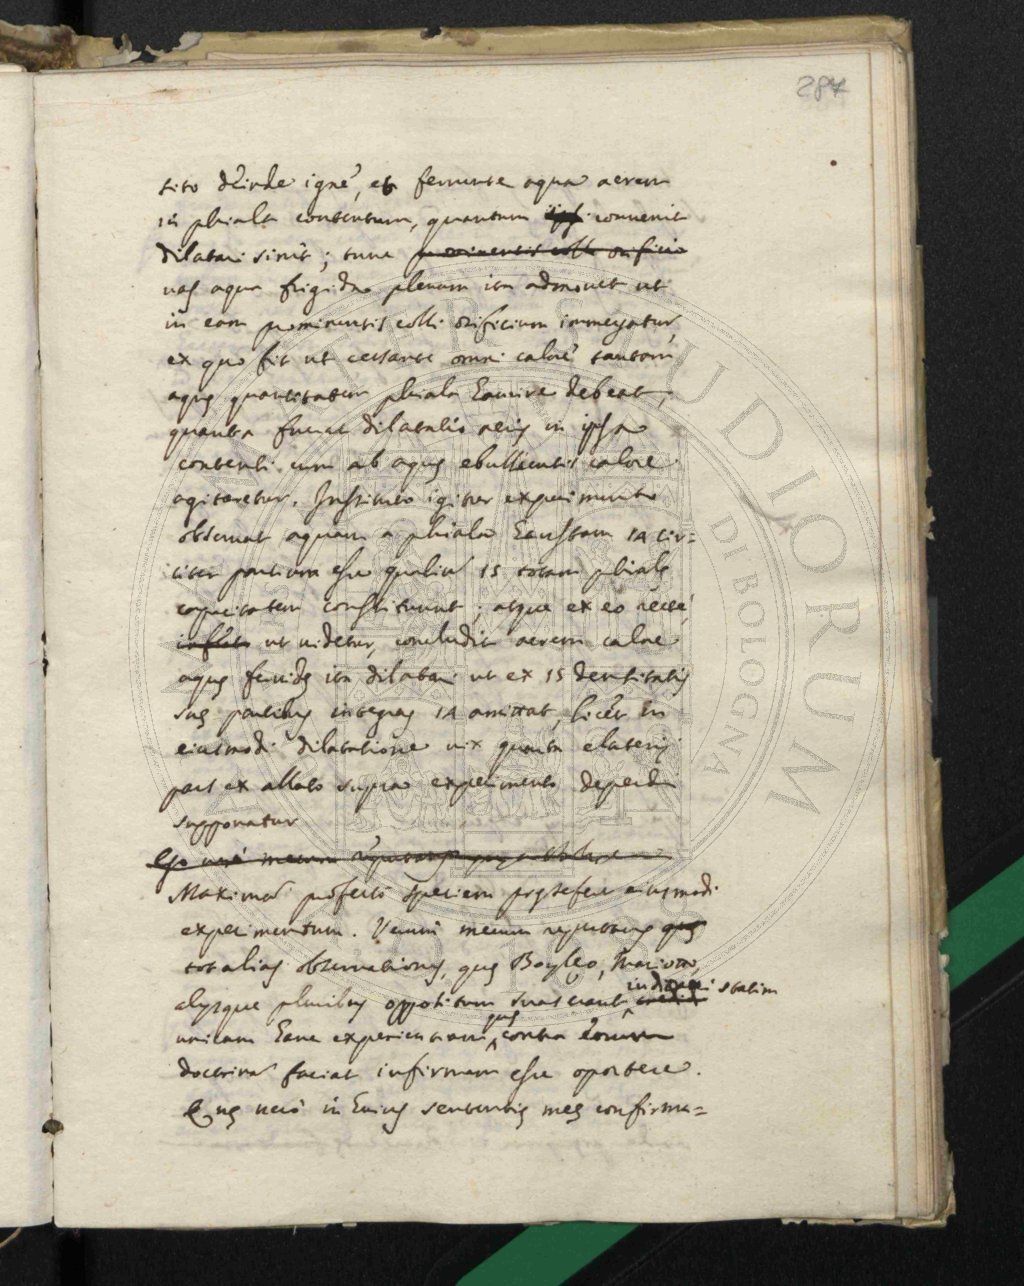 287
sito deinde igne, et fervente aqua aerem
in phiala contentum, quantum ipsi convenit
dilatari sinit; tunc prominentis colli orificio
vas aqua frigida plenum ita admovet ut
in eam prominentis colli orificium immergatur,
ex quo fit ut cessante omni calore tantam
aquę quantitatem phiala haurire debeat,
quanta fuerat dilatatio aeris in ipsa
contenti cum ab aquę ebullientis calore
agitaretur. Instituto igitur experimento
observat aquam a phiala haustam 14 cir=
citer partium esse qualiu 15 totam phialę
capacitatem constituunt; atque ex eo recte,
ut videtur, concludit aerem calore
aquę fervidę ita dilatari ut ex 15 densitatis
suę partibus integras 14 amittat, licet in
eiusmodi dilatatione vix quarta elaterij
pars ex allato supra experimento deperdi
supponatur
Ego vero mecum reputans
Maximam profecto speciem pręsefert eiusmodi
experimentum. Verum mecum reputans quę
tot alias observationes, quę Boyleo, Mariotto,
alijsque pluribus oppositum suaserant, iudicavi statim
unicam hanc experientiam, quę contra eorum
doctrinam faciat infirmam esse oportere.
Quę vero in huius sententię meę confirma=